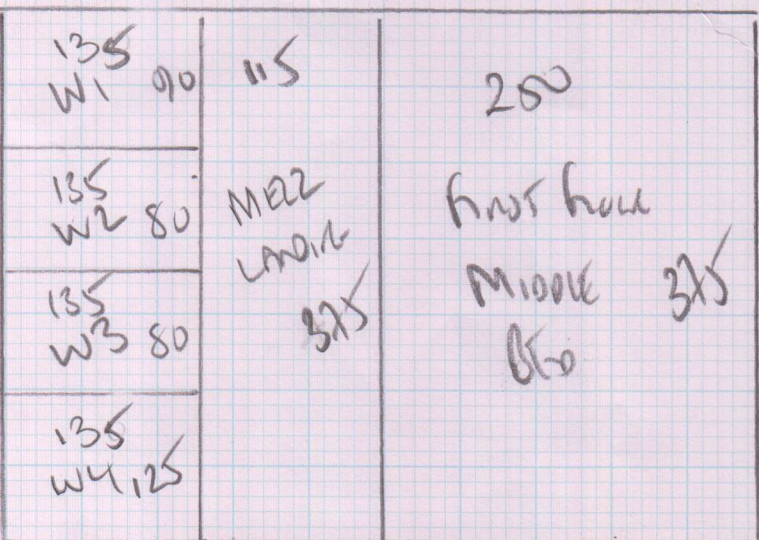 135
W1 90
135
W2 80
135
W3 80
135
W4 125
115
MEZZ
LANDING
375
250
FIRST FLOOR
MIDDLE 375
BED